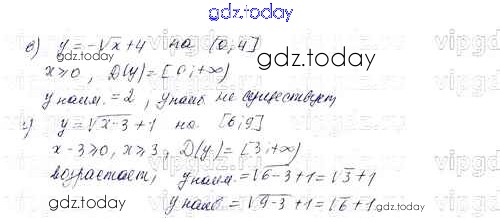 gdz.today
в) y = -√x + 4 на [0; 4]
x ≥ 0, D(y) = [0; +∞)
gdz.today
y наим. = 2, y наиб. не существует
г) y = √x-3 + 1 на [6; 9]
x - 3 ≥ 0, x ≥ 3, D(y) = [3; +∞)
возрастает, y наим. = √6-3 + 1 = √3 + 1
y наиб = √9-3 + 1 = √6 + 1
gdz.today